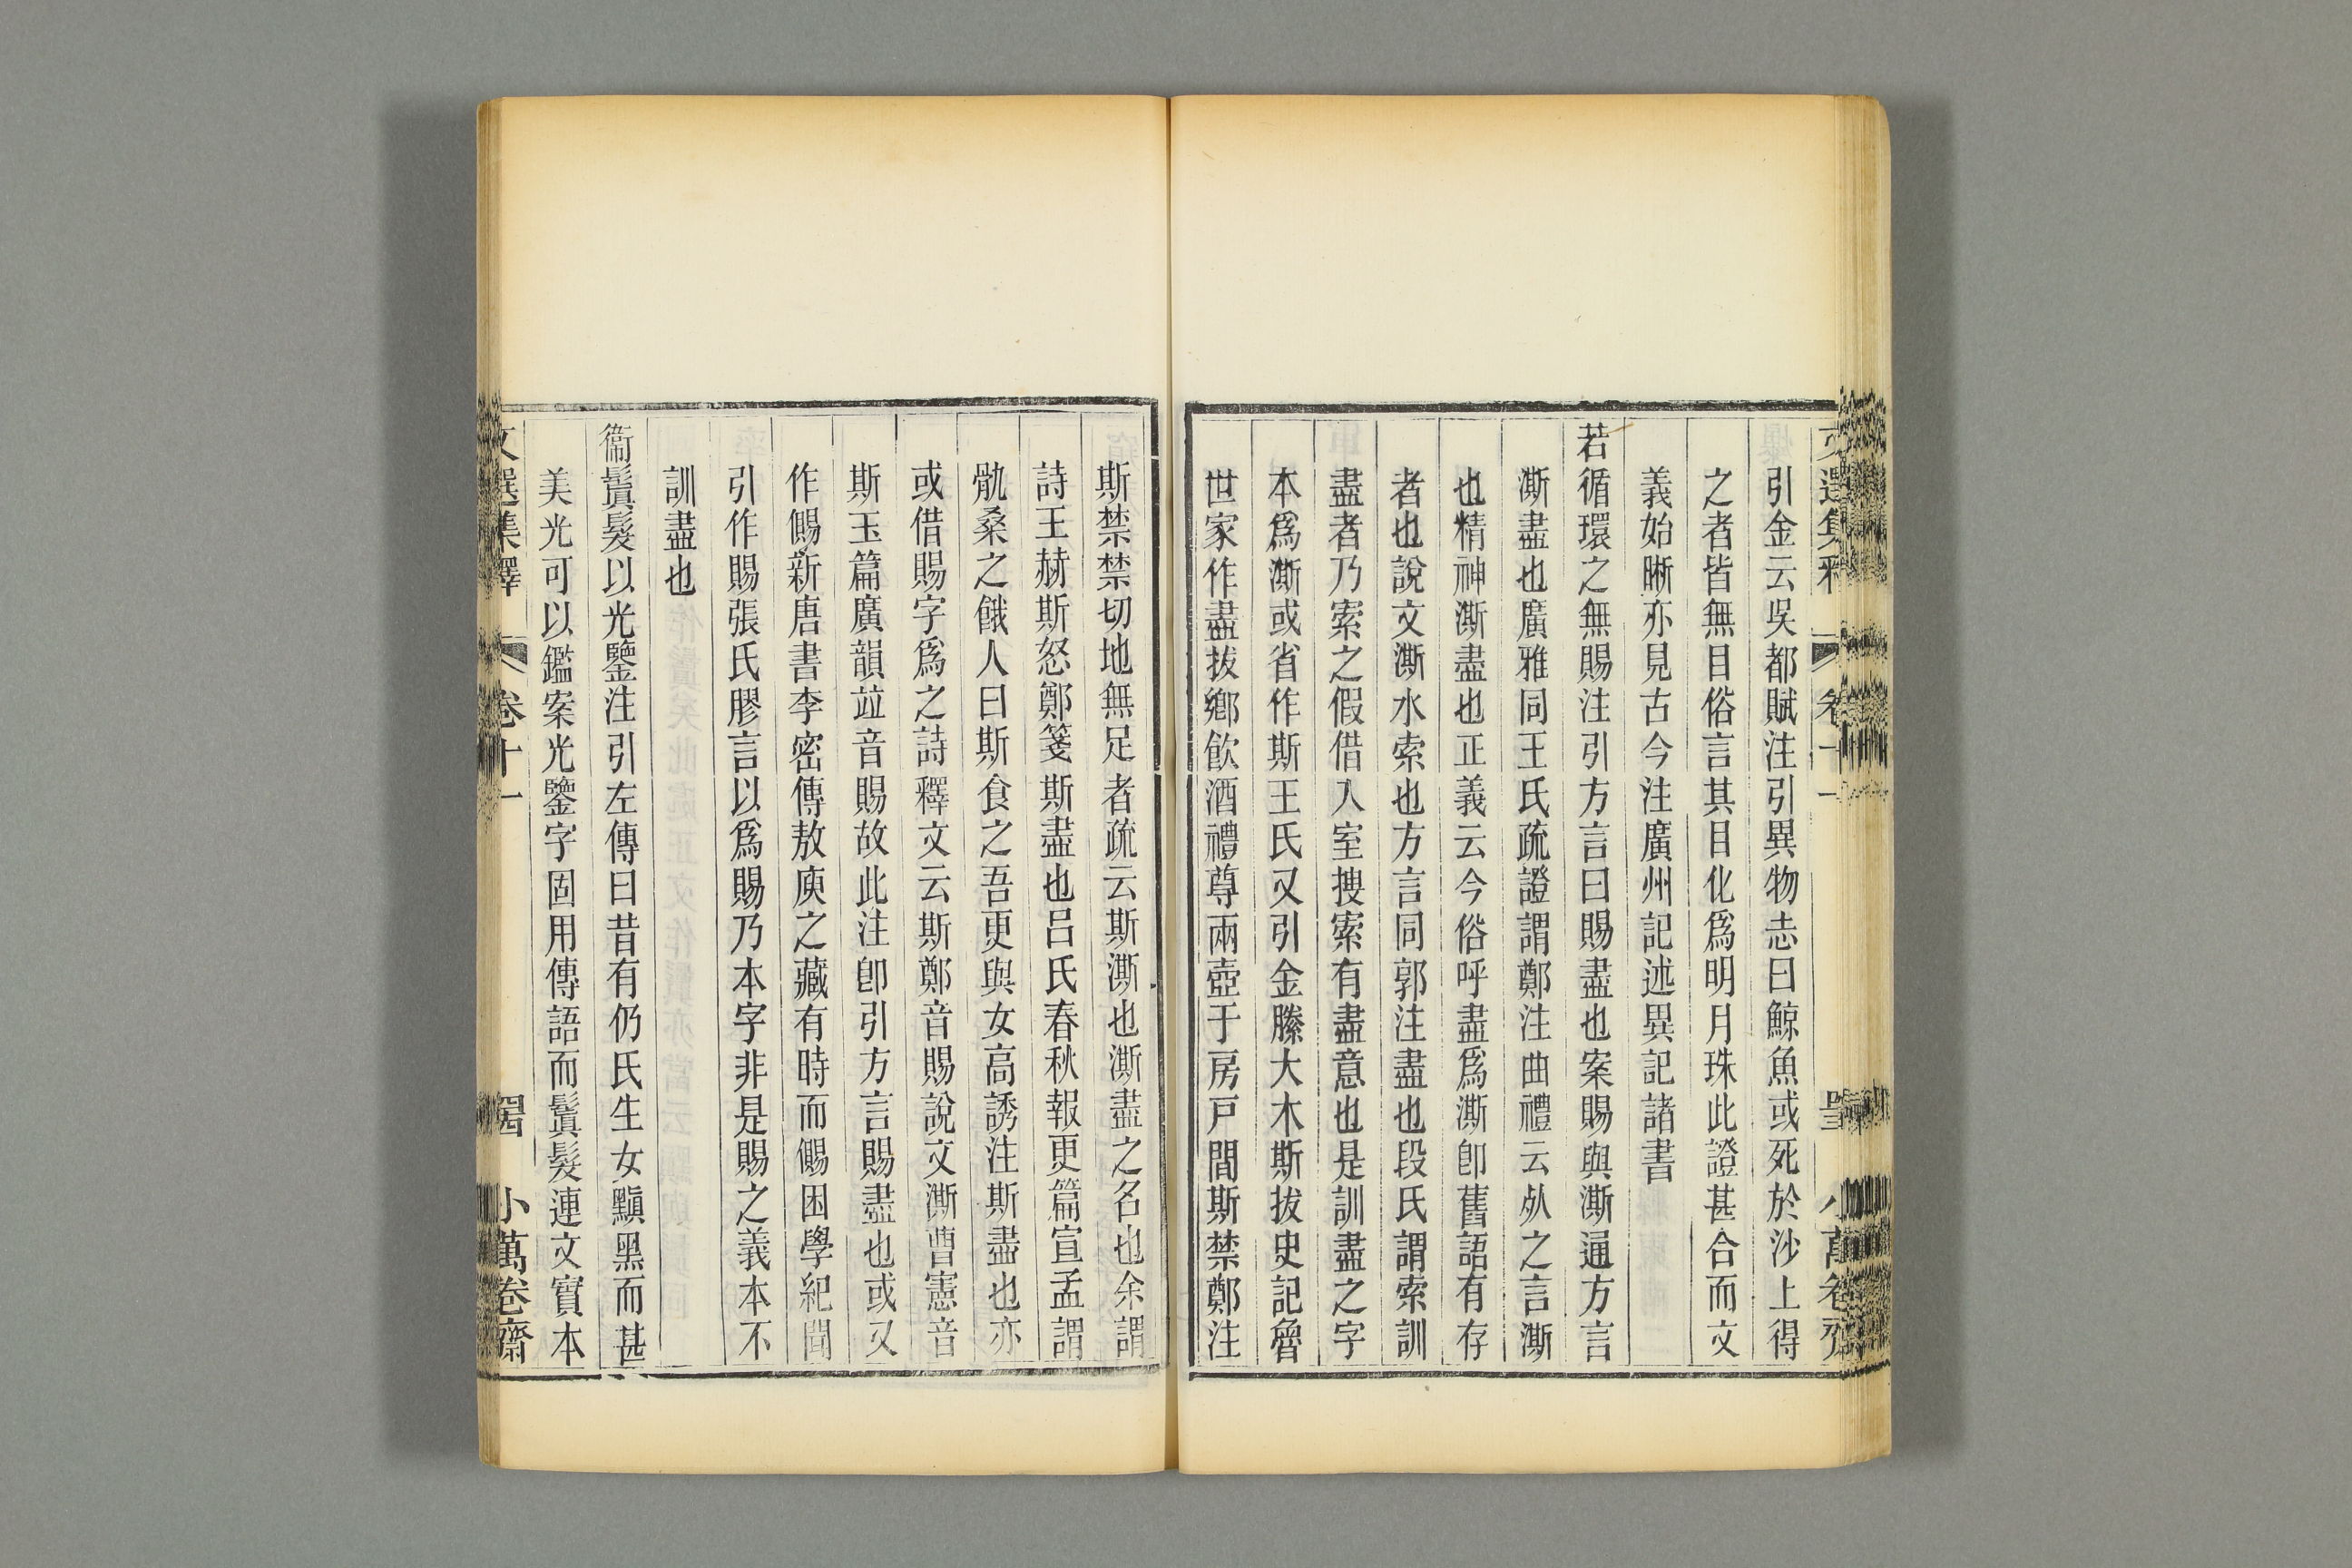 引金云吳都賦注引異物志曰鯨魚或死於沙上得
之者皆無目俗言其目化爲明月珠此證甚合而文
義始晰亦見古今注廣州記述異記諸書
若循環之無賜注引方言曰賜盡也案賜與澌通方言
澌盡也廣雅同王氏疏證謂鄭注曲禮云死之言澌
也精神澌盡也正義云今俗呼盡爲澌卽舊語有存
者也說文澌水索也方言同郭注盡也段氏謂索訓
盡者乃索之假借入室搜索有盡意也是訓盡之字
本爲澌或省作斯王氏又引金縢大木斯拔史記魯
世家作盡拔鄉飲酒禮尊兩壺于房戸間斯禁鄭注
斯禁禁切地無足者疏云斯澌也澌盡之名也余謂
詩王赫斯怒鄭箋斯盡也呂氏春秋報更篇宣孟謂
骫桑之餓人曰斯食之吾更與女高誘注斯盡也亦
或借賜字爲之詩釋文云斯鄭音賜說文澌曹憲音
斯玉篇廣韻竝音賜故此注卽引方言賜盡也或又
作儩新唐書李密傳敖庾之藏有時而儩困學紀聞
引作賜張氏膠言以爲賜乃本字非是賜之義本不
訓盡也
衞鬒髮以光鑒注引左傳曰昔有仍氏生女黰黑而甚
美光可以鑑案光鑒字固用傳語而鬒髮連文實本
文選集釋 卷十一 小萬卷齋